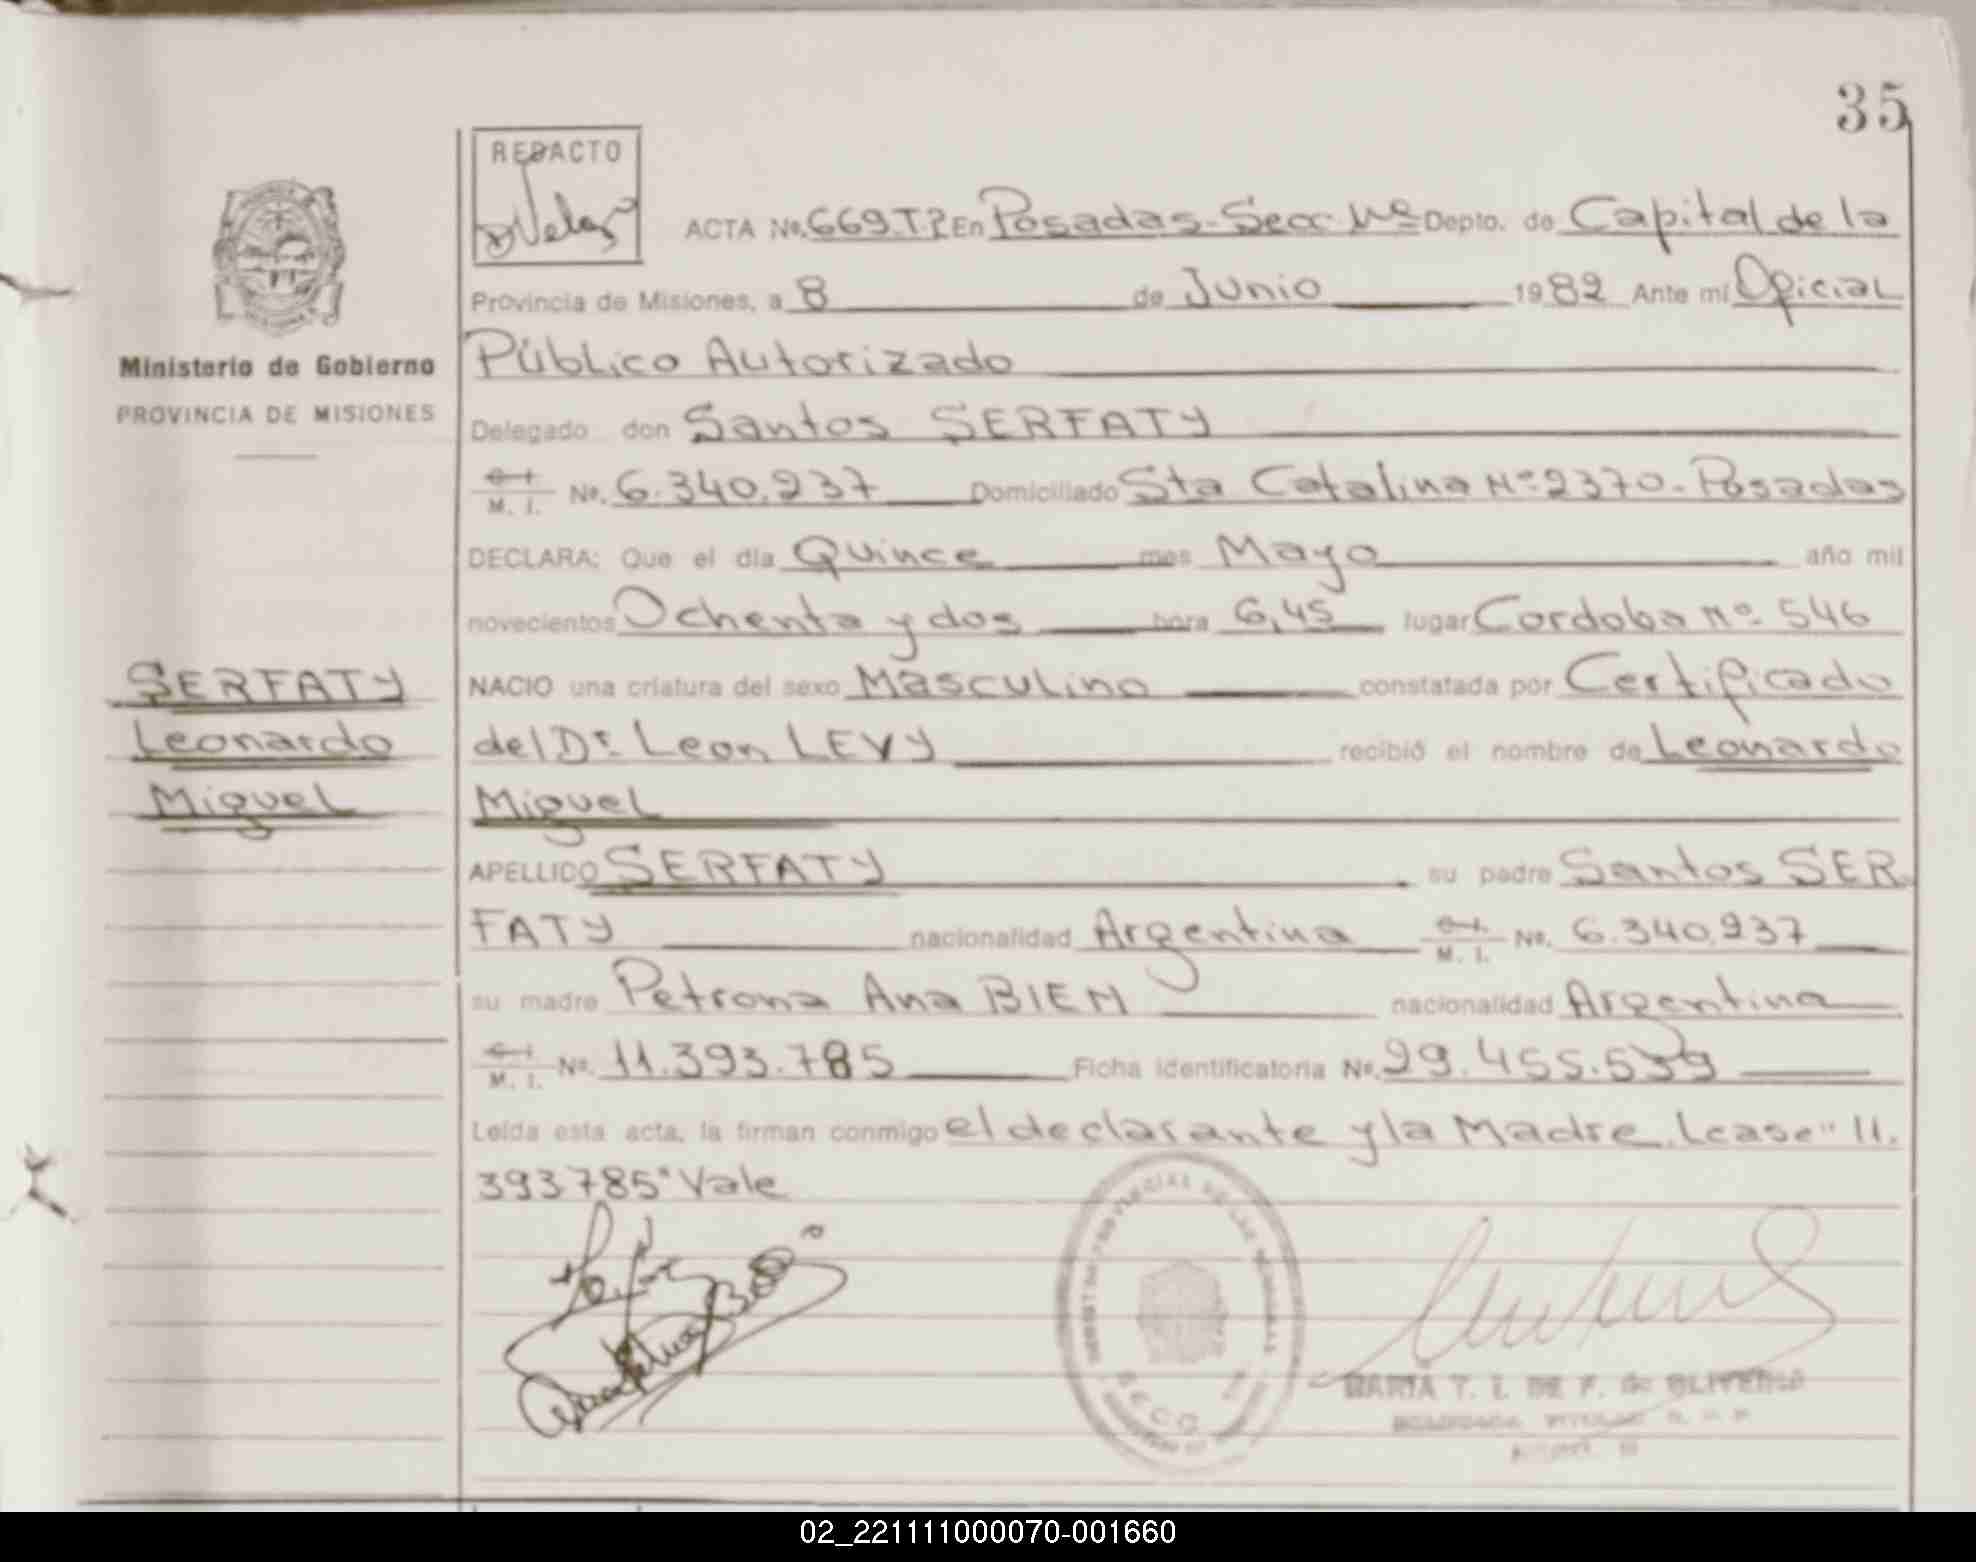 35
REDACTO
ACTA No. 669.T? En Posadas-Secc. Nº Depto. de Capital de la
Provincia de Misiones, a 8 de Junio 1982 Ante mí Oficial
Público Autorizado
Ministerio de Gobierno
PROVINCIA DE MISIONES
Delegado don Santos SERFATY
M. I. No. 6.340.237 Domiciliado Sta Catalina Nº 2370-Posadas
DECLARA: Que el día Quince mes Mayo año mil
novecientos Ochenta y dos hora 6,45 lugar Cordoba Nº 546
SERFATY
Leonardo
Miguel
NACIO una criatura del sexo Masculino constatada por Certificado
del Dr. Leon LEVY recibió el nombre de Leonardo
Miguel
APELLIDO SERFATY su padre Santos SER
FATY nacionalidad Argentina M. I. No. 6.340.237
su madre Petrona Ana BIEN nacionalidad Argentina
M. I. No. 11.393.785 Ficha identificatoria No. 29.455.539
Leída esta acta, la firman conmigo el declarante y la Madre. Lease "11.
393785" Vale
MARIA T. I. DE F. de OLIVEIRA
02_221111000070-001660